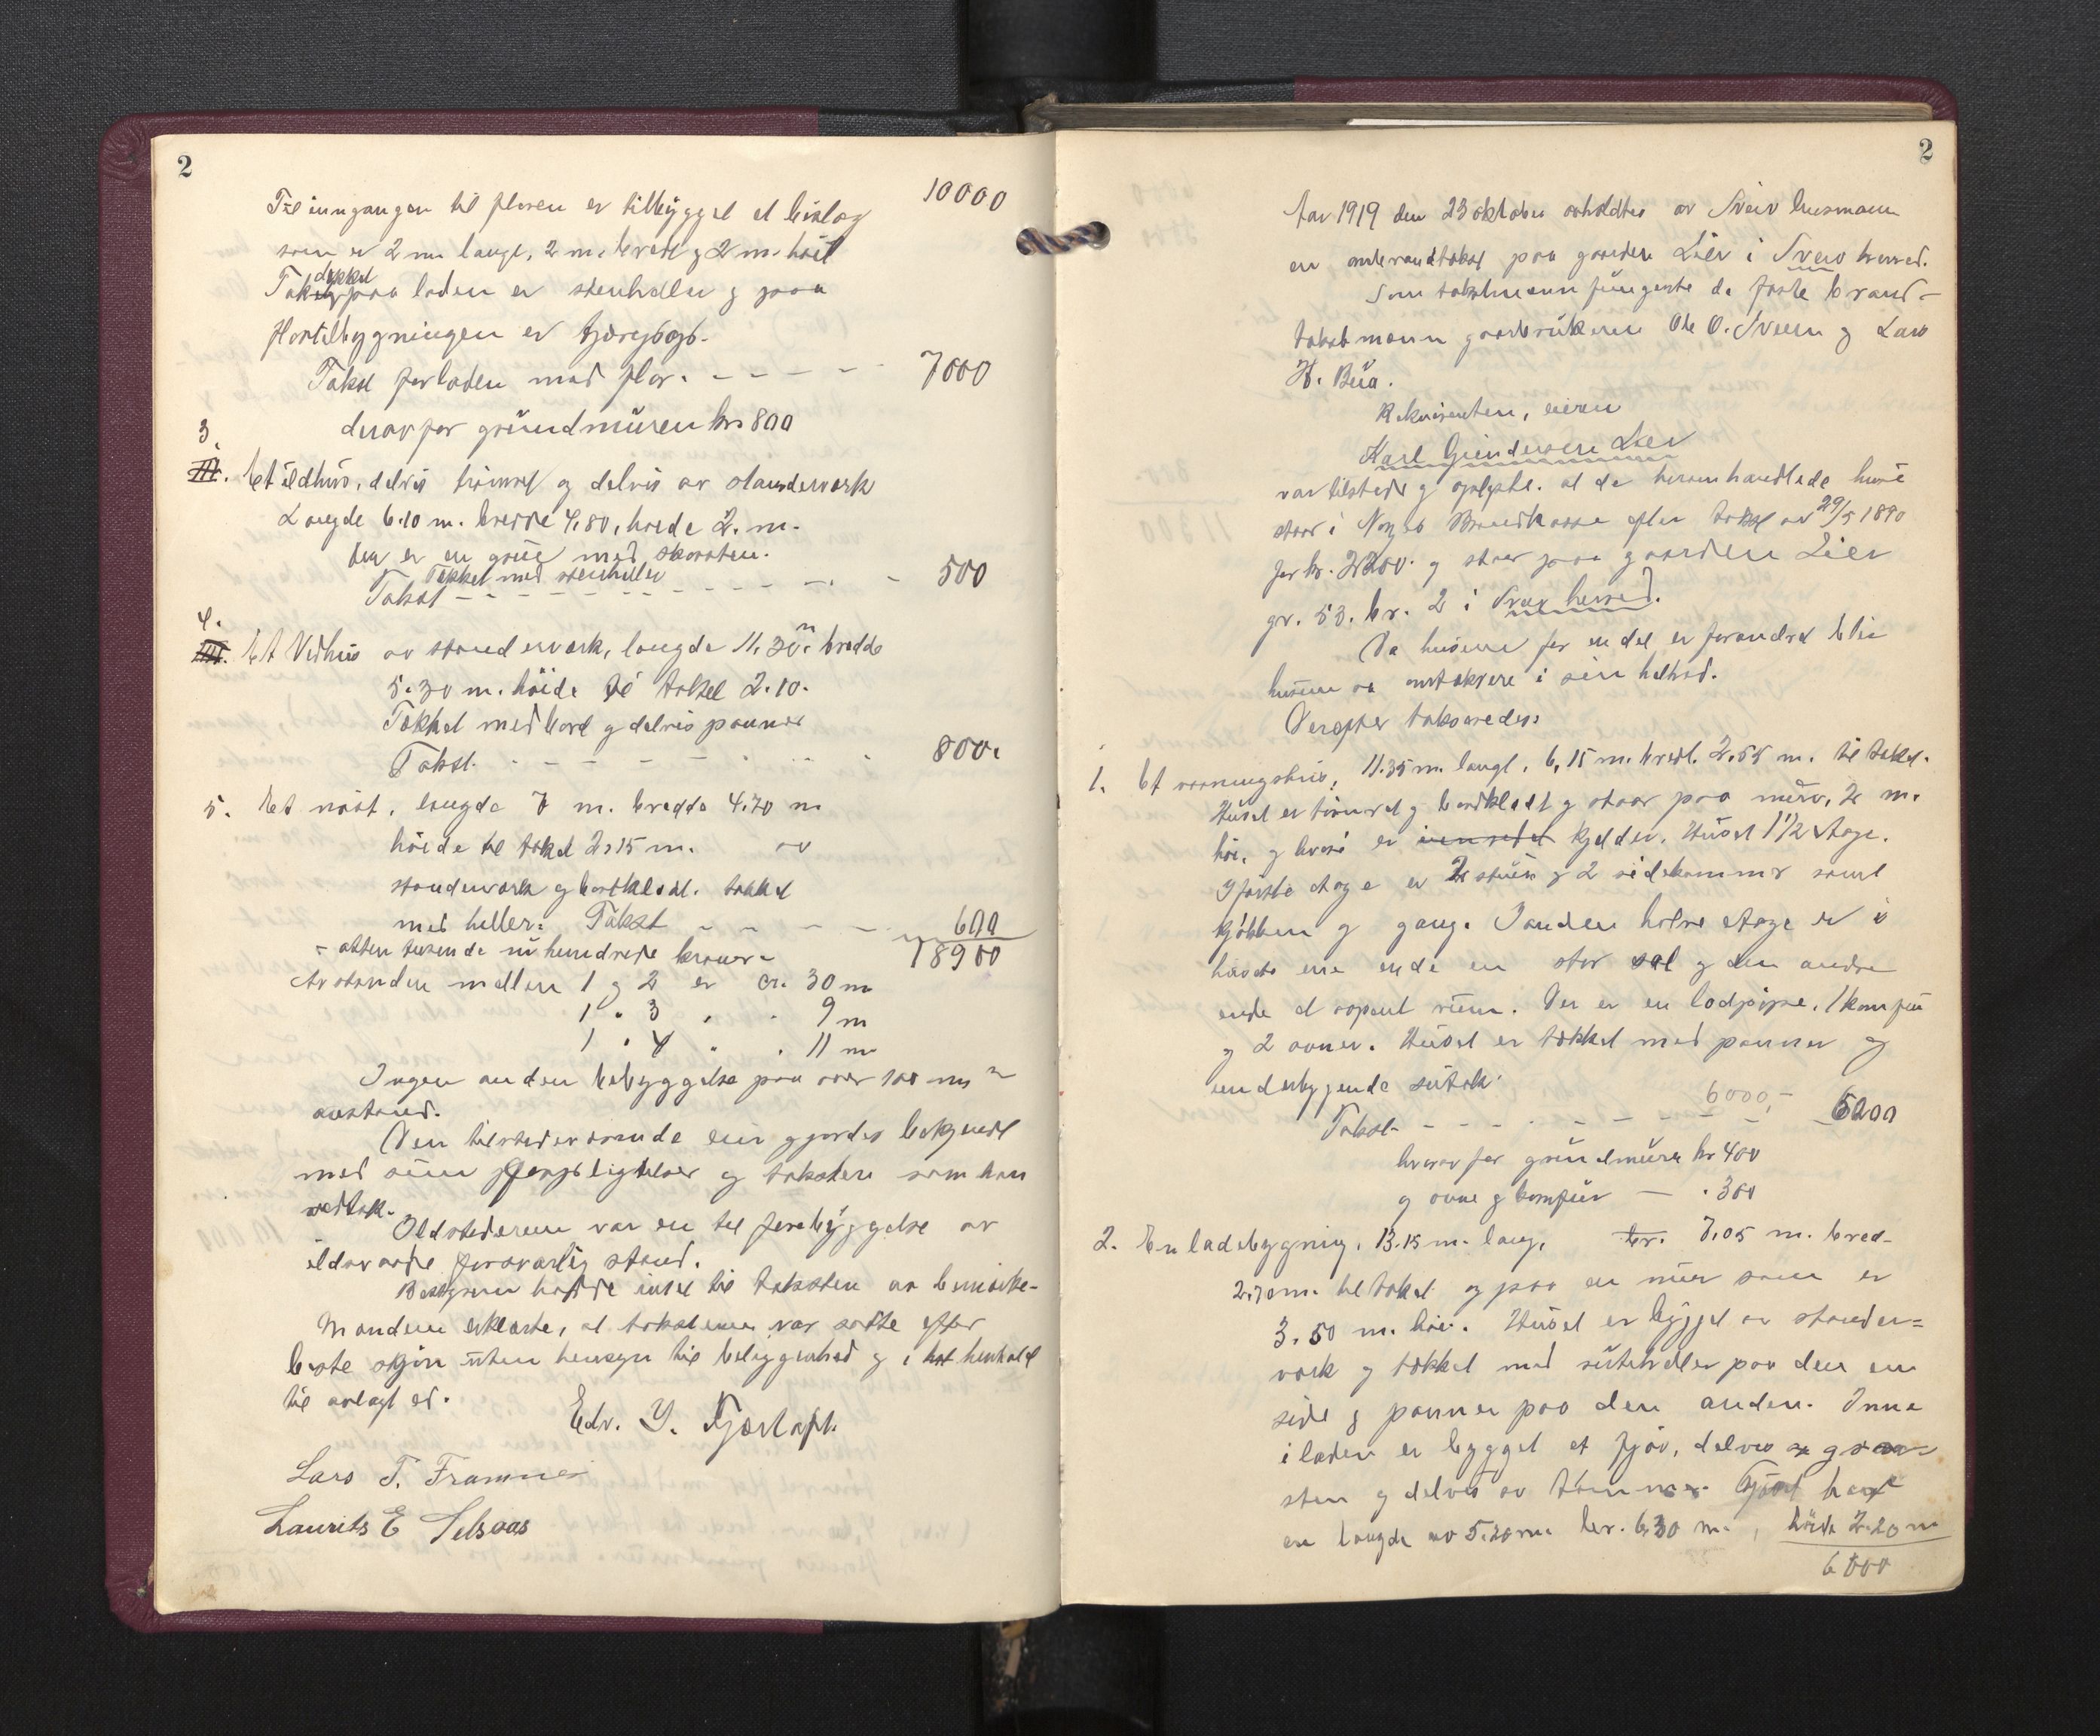 2
10000
Til inngangen til floren er tilbygget et bislag
som er 2 m langt, 2 m. bredt og 2 m. høit
Takdekket paa laden er stenheller og paa
flortilbygningen er
Takst for laden med flor. - - - - - 7000
derav for grundmuren kr 800
3.
III. Et ildhus, delvis tømret og delvis av standerverk
Længde 6.10 m. bredde 4,80, høide 2. m.
Der er en grue med skorsten.
Tækket med stenheller
Takst - - - - - - - - - - 500
4.
IIII. Et Vedhus av standerverk, længde 11.30 m. bredde
5.30 m. høide til taket 2.10.
Tækket med bord og delvis panner
Takst. - - - - - - 800.
5. Et nøst, længde 7 m. bredde 4.70 m
høide til taket 2,15 m. av
standerverk og bordklædt. tækket
med heller. Takst - - - - - 600
- atten tusende ni hundrede kroner - 18900
Avstanden mellem 1 og 2 er ca. 30 m
1 " 3 " " 9 m
1 " 4 " " 11 m
Ingen anden bebyggelse paa over 100 m
avstand.
Den tilstedeværende eier gjordes bekjendt
med sine forpligtelser og taksten som han
vedtok.
Ildstederene var en til forebyggelse av
ildsvaade forsvarlig stand.
Bestyreren hadde intet til taksten at bemærke-
Mændene erklærte, at takstene var satte efter
beste skjøn uten hensyn til beliggenhed og i henhold
til avlagt ed.
Edv. Y. Tjærtoft.
Lars T. Framnes
Laurits E Selsaas
2
Aar 1919 den 23 oktober avholdtes av Sveio lensmann
en ombrandtakst paa gaarden Lier i Sveio herred.
Som takstmænn fungerte de faste brand-
takstmænn gaardbrukerne Ole O. Sveen og Lars
H. Bua.
Rekvirenten, eieren
Karl Gundersen Lier
var tilstede og oplyste. at de heromhandlede huse
staar i Norges Brandkasse efter takst av 29/5 1890
for kr. 2200. og staar paa gaarden Lier
gr. 53. br. 2 i Sveio herred.
Da husene for en del er forandret blir
husene at omtaksere i sin helhed.
Derefter takseredes:
1. Et vaaningshus, 11.35 m. langt, 6,15 m. bredt. 2,55 m. til taket.
Huset er tømret og bordklædt og staar paa mur, 2 m.
høi, og hvori er kjelder. Huset 1 1/2 etage.
I første etage er 2 stuer og 2 sidekammer samt
kjøkken og gang. I anden halve etage er i
husets ene ende en stor sal og den andre
ende et aapent rum. Der er en lodpipe, 1 komfur
og 2 ovner. Huset er tækket med panner og
underliggende sutak.
6000,-
Takst - - - - - - - - - 5200
hvorav for grundmure kr 400
og ovne og komfur — . 300
2. En ladebygning, 13.15 m. lang, br. 7,05 m. bred-
2.70 m. til taket og paa en mur som er
3.50 m. høi. Huset er bygget av stander=
verk og tækket med stenheller paa den ene
side og panner paa den anden. Inne
i laden er bygget et fjøs, delvis av graa-
sten og delvis av tømmer. Fjøset har
en længde av 5.20 m. br. 6,30 m. , høide 2.20 m
6000